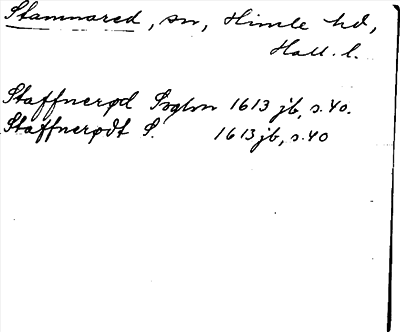 Stamnared, sn, Himle hd,
Hall. l.
Staffnerød Sogn 1613 jb, s. 40.
Staffnerødt S. 1613 jb, s. 40